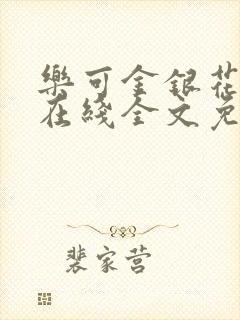 樂可金銀花
在綫全文免
裴家营